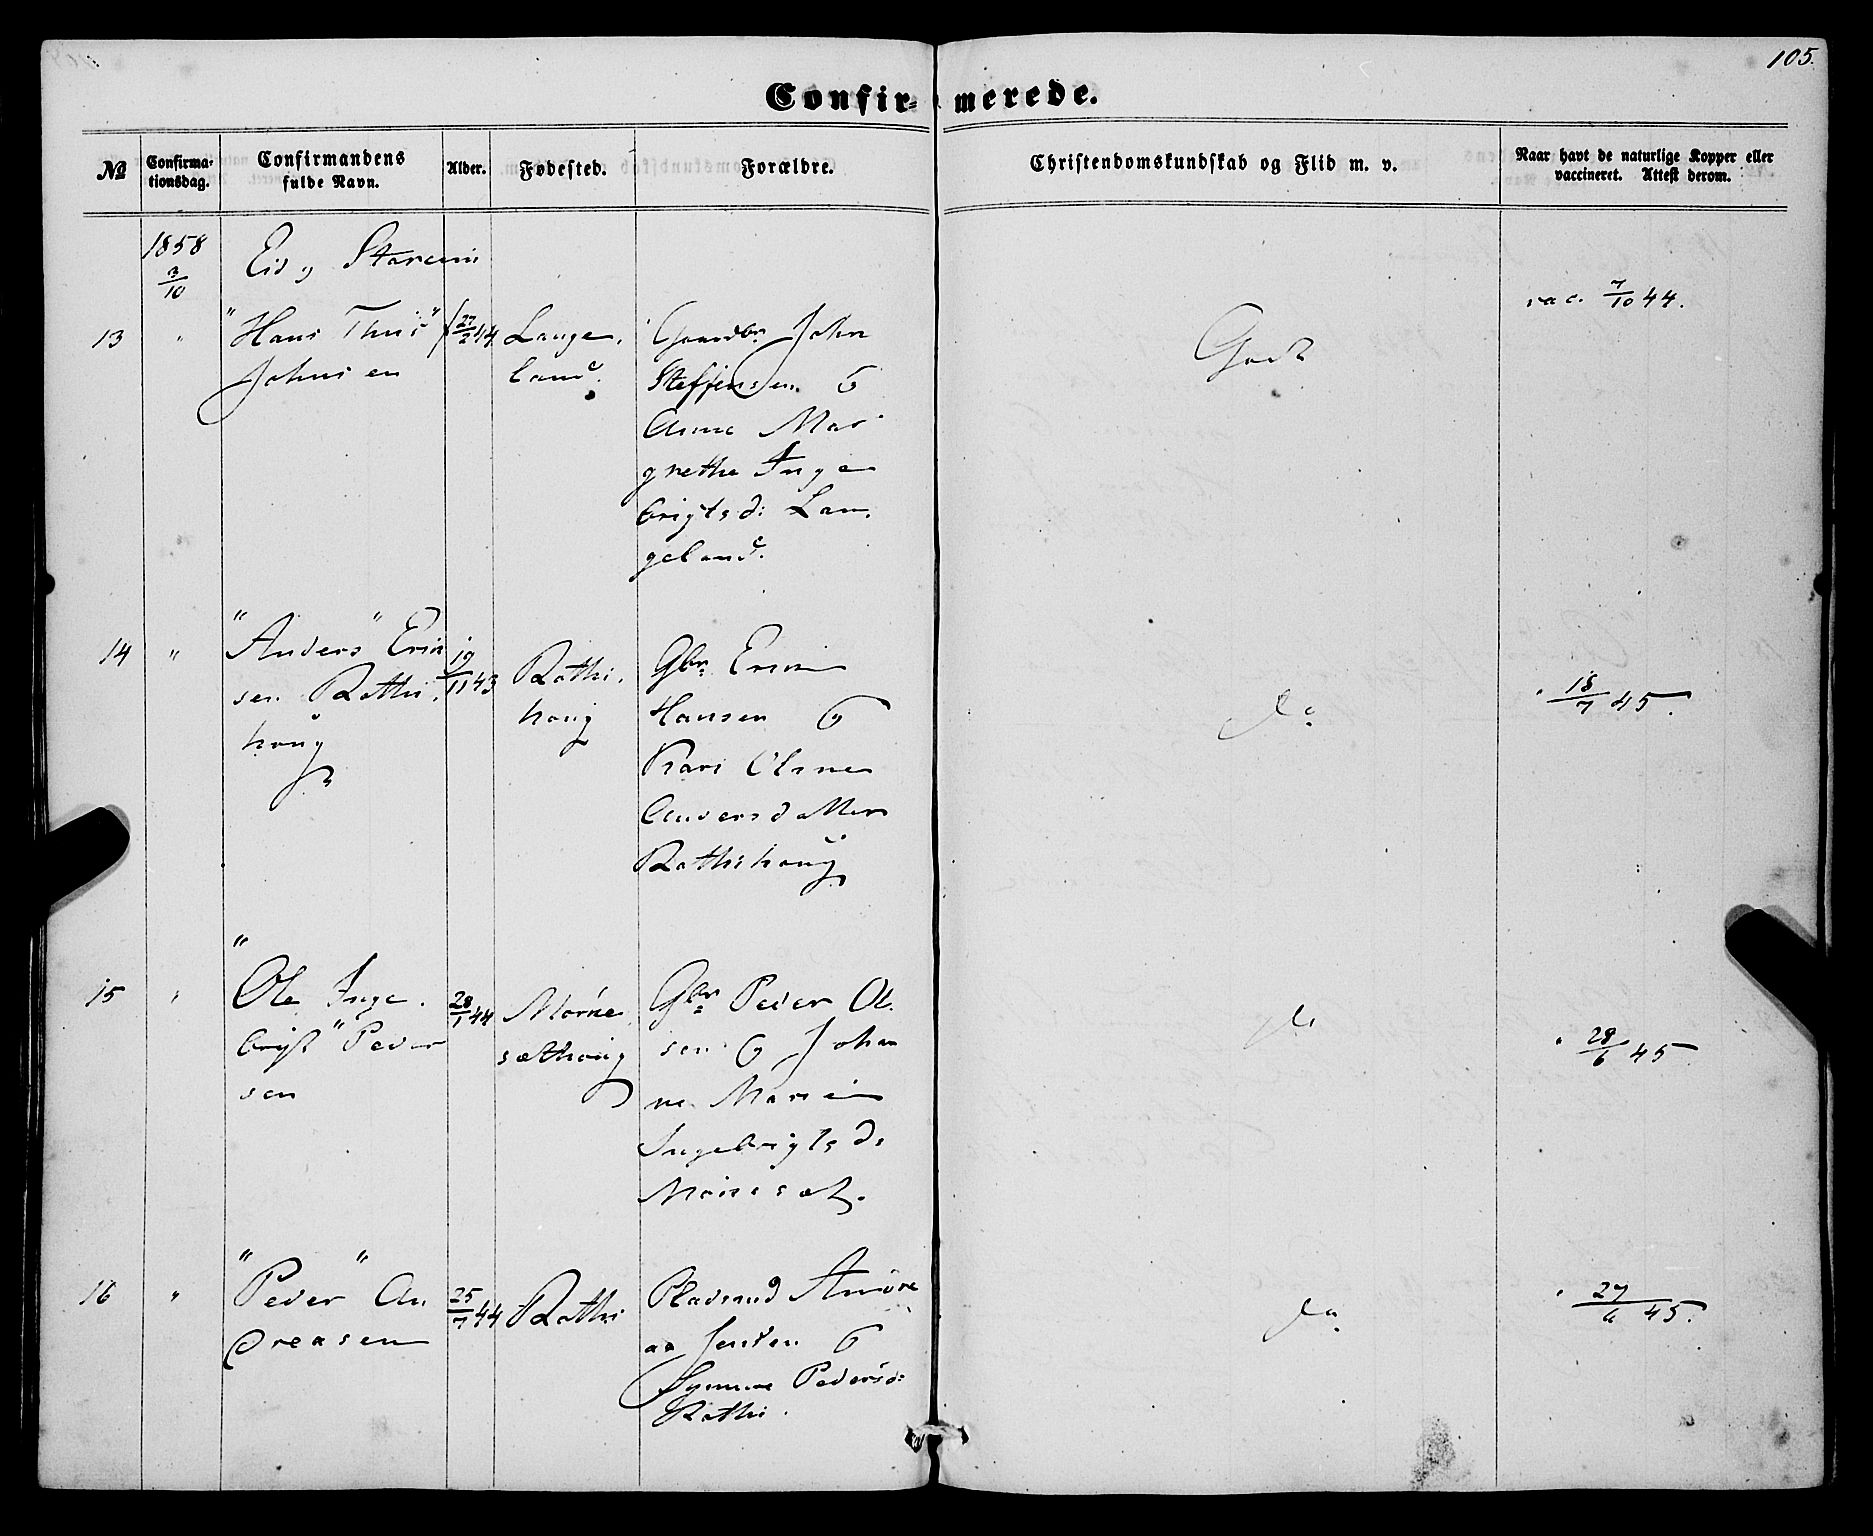 105.
Confir- merede.
№
Confirma-
tionsdag.
Confirmandens
fulde Navn.
Alder.
Fødested.
Forældre.
Christendomskundskab og Flid m. v.
Naar havt de naturlige Kopper eller
vaccineret. Attest derom.
1858
3/10
Eid
13 " "Hans Thiis"
Johnsen
27/2 44
Lange-
land.
Gaardbr. John
Steffensen &
Anne Mar
grethe Inge
brigtsd: Lan-
geland.
Godt
vac. 7/10 44.
14 " "Anders"
sen Rothi-
houg
19/11 43
Rothi-
houg
Gbr.
Hansen &
Kari Oline
Andersdatter
Rothihoug
do
" 18/7 45.
15 " "Ole Inge-
brigt" Peder
sen
28/1 44
sæthoug
Gbr. Peder Ol-
sen & Johan
ne Marie
Ingebrigtsd:
do
" 28/6 45
16 " "Peder" An
dreasen
25/7 44
Rothi
Pladsmd Andre
as Jensen &
Synneve Pedersd:
Rothi.
do
" 27/6 45.